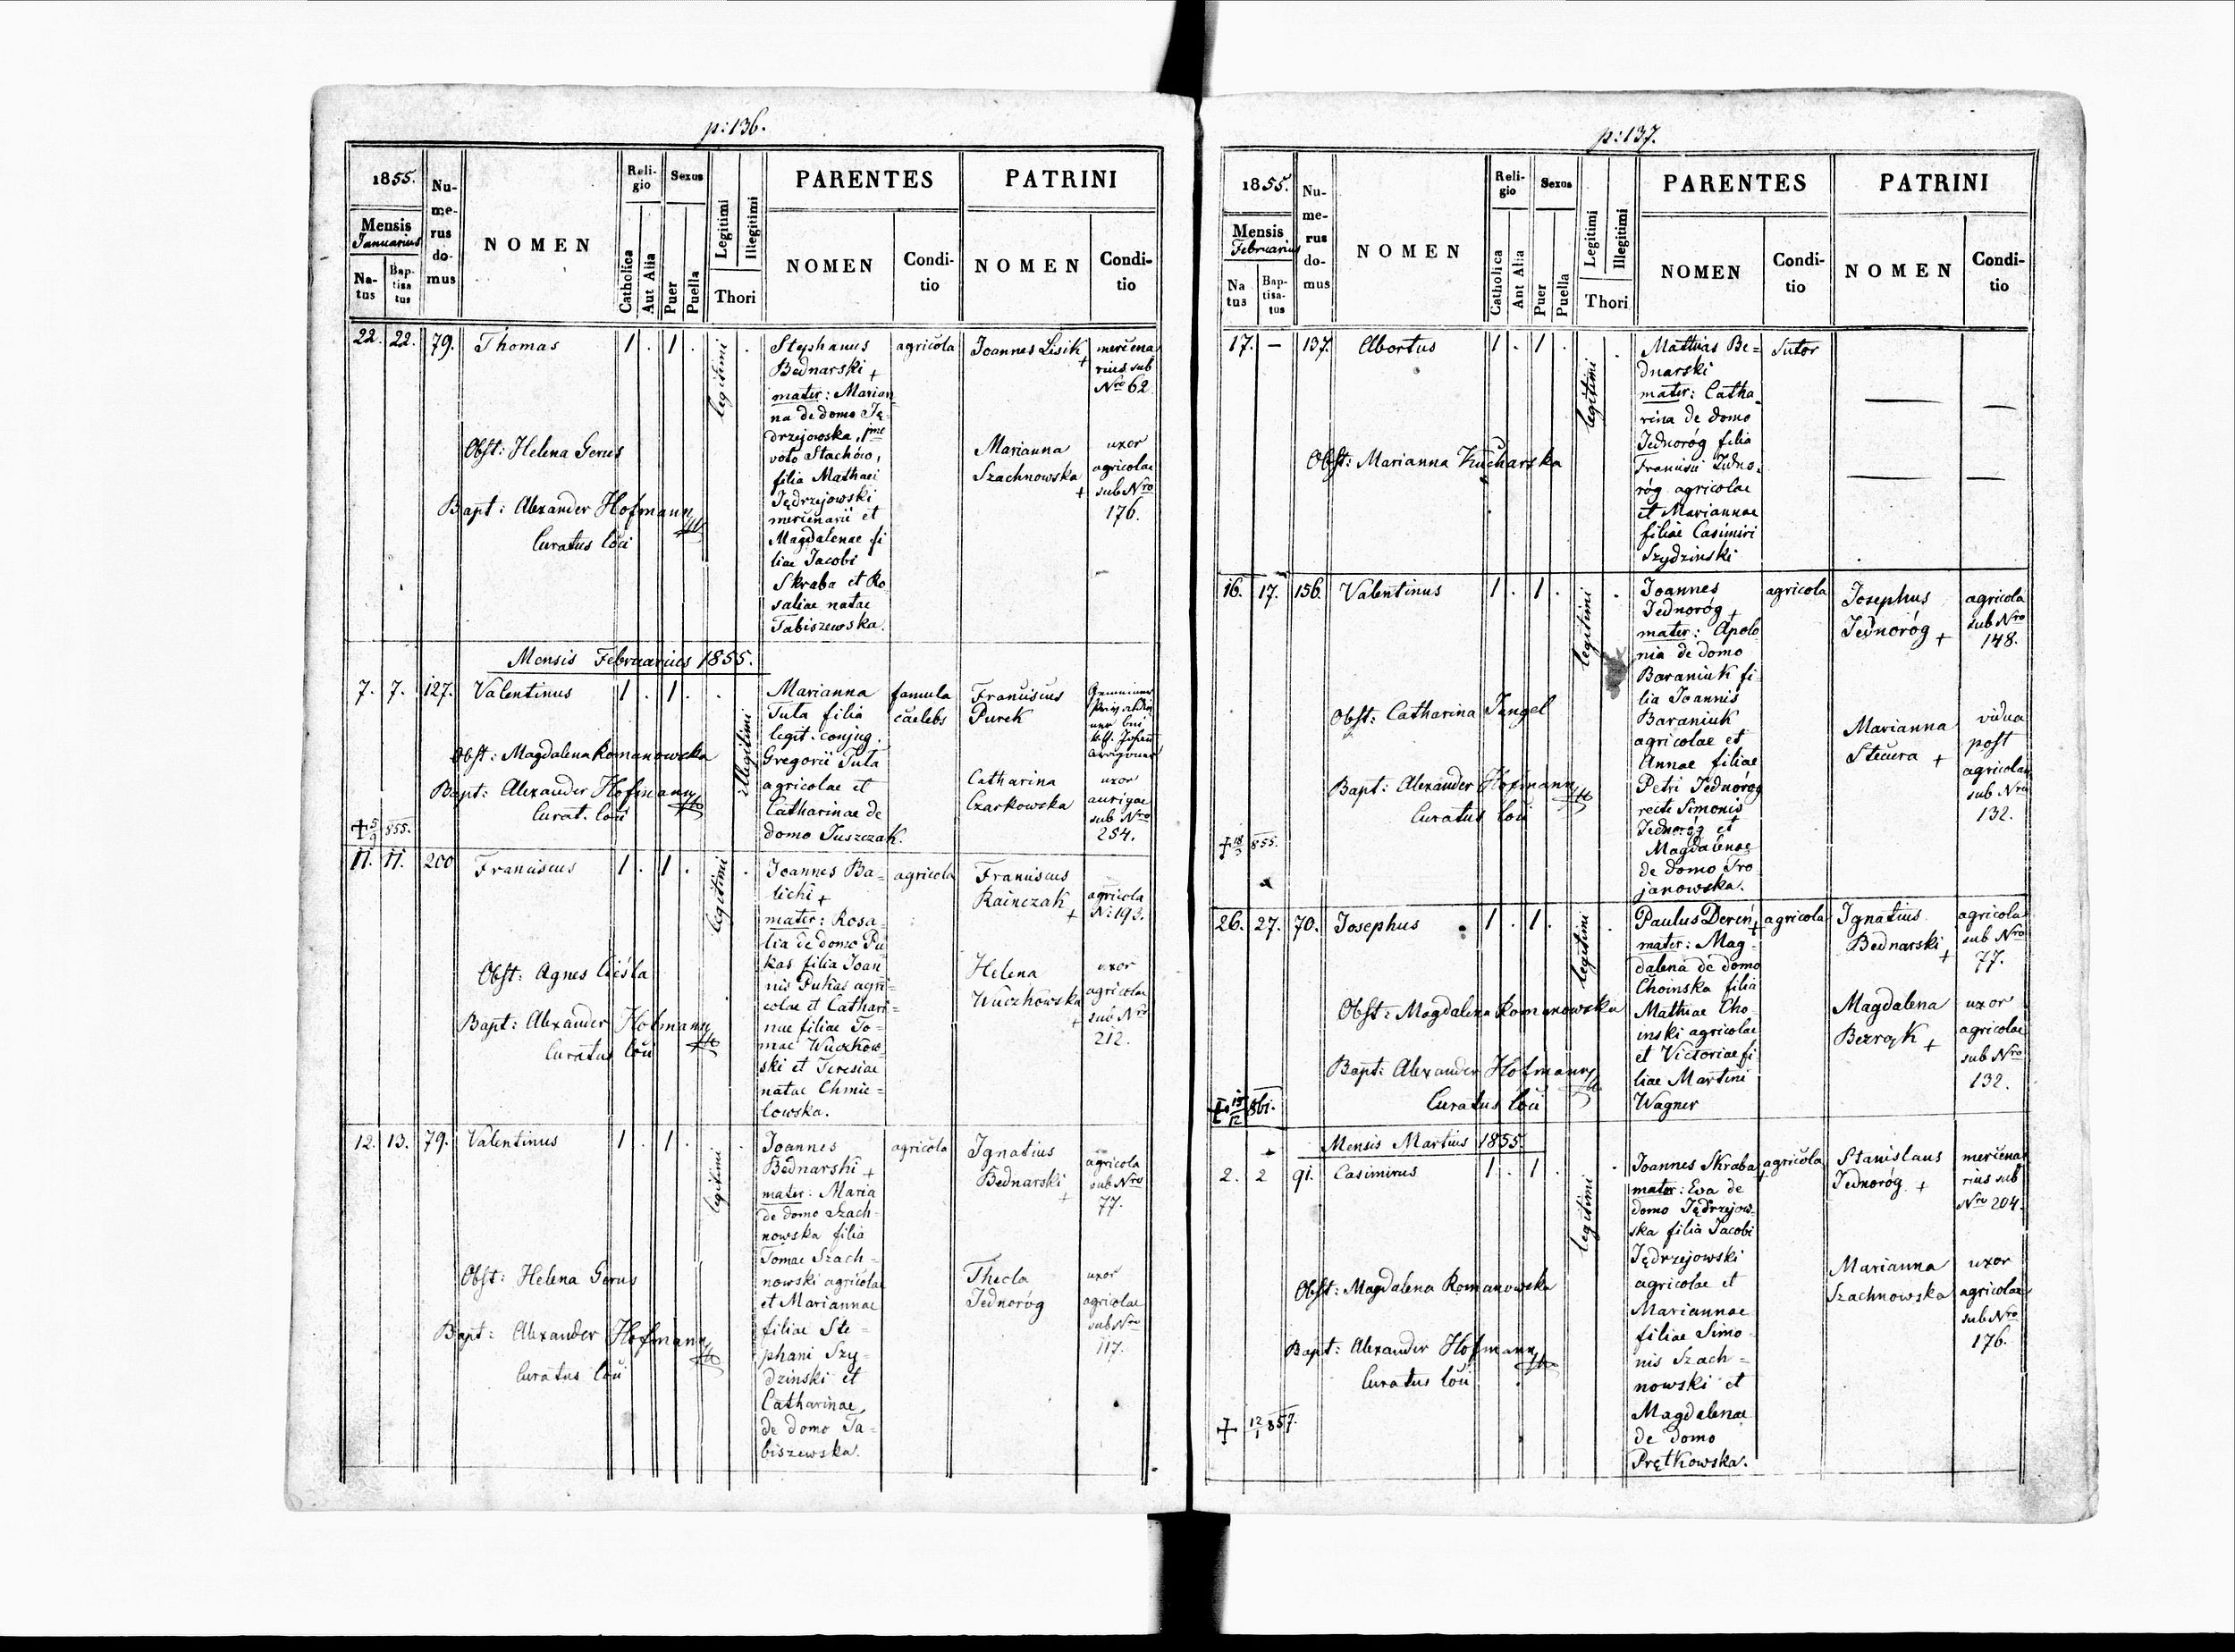 p: 136.
1855.
Mensis
Januarius
Na-
tus
Bap-
tisa
tus
Nu-
me-
rus
do-
mus
NOMEN
Reli-
gio
Catholica
Aut Alia
Sexus
Puer
Puella
Legitimi
Illegitimi
Thori
PARENTES
NOMEN
Condi-
tio
PATRINI
NOMEN
Condi-
tio
22. 22. 79. Thomas 1 . 1 .
legitimi
Obst: Helena Gerus
Bapt: Alexander Hofmann
Curatus loci
Stephanus
Bednarski +
mater: Marian
na de domo Ję
drzejowska, pme
voto Stachów,
filia Mathaei
Jędrzejowski
mercenarii et
Magdalenae fi
liae Jacobi
Skraba et Ro
saliae natae
Tabiszewska.
agricola
Joannes Lisik +
mercena
rius sub
Nro 62
Marianna
Szachnowska +
uxor
agricolae
sub Nro
176.
Mensis Februarius 1855.
7. 7. 127. Valentinus 1 . 1 . .
illegitimi
Obst: Magdalena Romanowska
Bapt: Alexander Hofmann
Curat. loci
+ 5/9 855.
Marianna
Tuta filia
legit. conjug.
Gregorii Tuta
agricolae et
Catharinae de
domo Juszczak.
famula
caelebs
Franciscus
Purek
Catharina
Czarkowska
uxor
aurigae
sub Nro
254.
11. 11. 200 Franciscus 1 . 1 . .
legitimi
Obst: Agnes Cieśla
Bapt: Alexander Hofmann
Curatus loci
Joannes Ba-
lichi +
mater: Rosa-
lia de domo Pu
kas filia Joan
nis Pukas agri-
colae et Cathari-
nae filiae To-
mae Wuczkow-
ski et Teresiae
natae Chmie-
lowska.
agricola
Franciscus
Rainczak +
agricola
N: 193.
Helena
Wuczkowska +
uxor
agricolae
sub Nro
212.
12. 13. 79. Valentinus 1 . 1 . .
legitimi
Obst: Helena Gerus
Bapt: Alexander Hofmann
Curatus loci
Joannes
Bednarski +
mater: Maria
de domo Szach-
nowska filia
Tomae Szach-
nowski agricolae
et Mariannae
filiae Ste-
phani Szy-
dzinski et
Catharinae
de domo Ta-
biszewska.
agricola
Ignatius
Bednarski +
agricola
sub Nro
77.
Thecla
Jednoróg
uxor
agricolae
sub Nro
117.
p: 137.
1855.
Mensis
Februarius
Na
tus
Bap-
tisa-
tus
Nu-
me-
rus
do-
mus
NOMEN
Reli-
gio
Catholica
Aut Alia
Sexus
Puer
Puella
Legitimi
Illegitimi
Thori
PARENTES
NOMEN
Condi-
tio
PATRINI
NOMEN
Condi-
tio
17. — 137. Abortus 1 . 1 . .
legitimi
Obst: Marianna Kucharska
Mathias Be=
dnarski
mater: Catha-
rina de domo
Jednoróg filia
Francisci Jedno-
róg agricolae
et Mariannae
filiae Casimiri
Szydzinski
sutor
— —
— —
16. 17. 156. Valentinus 1 . 1 . .
legitimi
Obst: Catharina Jungel
Bapt: Alexander Hofmann
Curatus loci
+ 18/3 855.
Joannes
Jednoróg +
mater: Apolo
nia de domo
Baraniuk fi
lia Joannis
Baraniuk
agricolae et
Annae filiae
Petri Jednoróg
recte Simonis
Jednoróg et
Magdalenae
de domo Tro
janowska.
agricola
Josephus
Jednoróg +
agricola
sub Nro
148.
Marianna
Stecura +
vidua
post
agricolam
sub Nro
132.
26. 27. 70. Josephus 1 . 1 . .
legitimi
Obst: Magdalena Romanowska
Bapt: Alexander Hofmann
Curatus loci
Paulus Dereń +
mater: Mag-
dalena de domo
Choinska filia
Mathiae Cho
inski agricolae
et Victoriae fi
liae Martini
Wagner
agricola
Ignatius
Bednarski +
agricola
sub Nro
77.
Magdalena
uxor
agricolae
sub Nro
132.
Mensis Martius 1855.
2. 2 91. Casimirus 1 . 1 . .
legitimi
Obst: Magdalena Romanowska
Bapt: Alexander Hofmann
Curatus loci
+ 12/1 857.
Joannes Skraba +
mater: Eva de
domo Jędrzejow-
ska filia Jacobi
Jędrzejowski
agricolae et
Mariannae
filiae Simo-
nis Szach-
nowski et
Magdalenae
de domo
Prętkowska.
agricola
Stanislaus
Jednoróg +
mercena
rius sub
Nro 204.
Marianna
Szachnowska
uxor
agricolae
sub Nro
176.